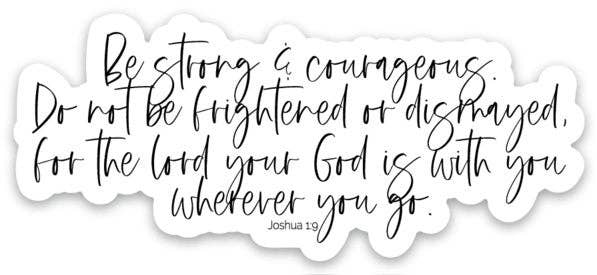 Be strong & courageous.
Do not be frightened or dismayed,
for the Lord your God is with you
wherever you go.
Joshua 1:9